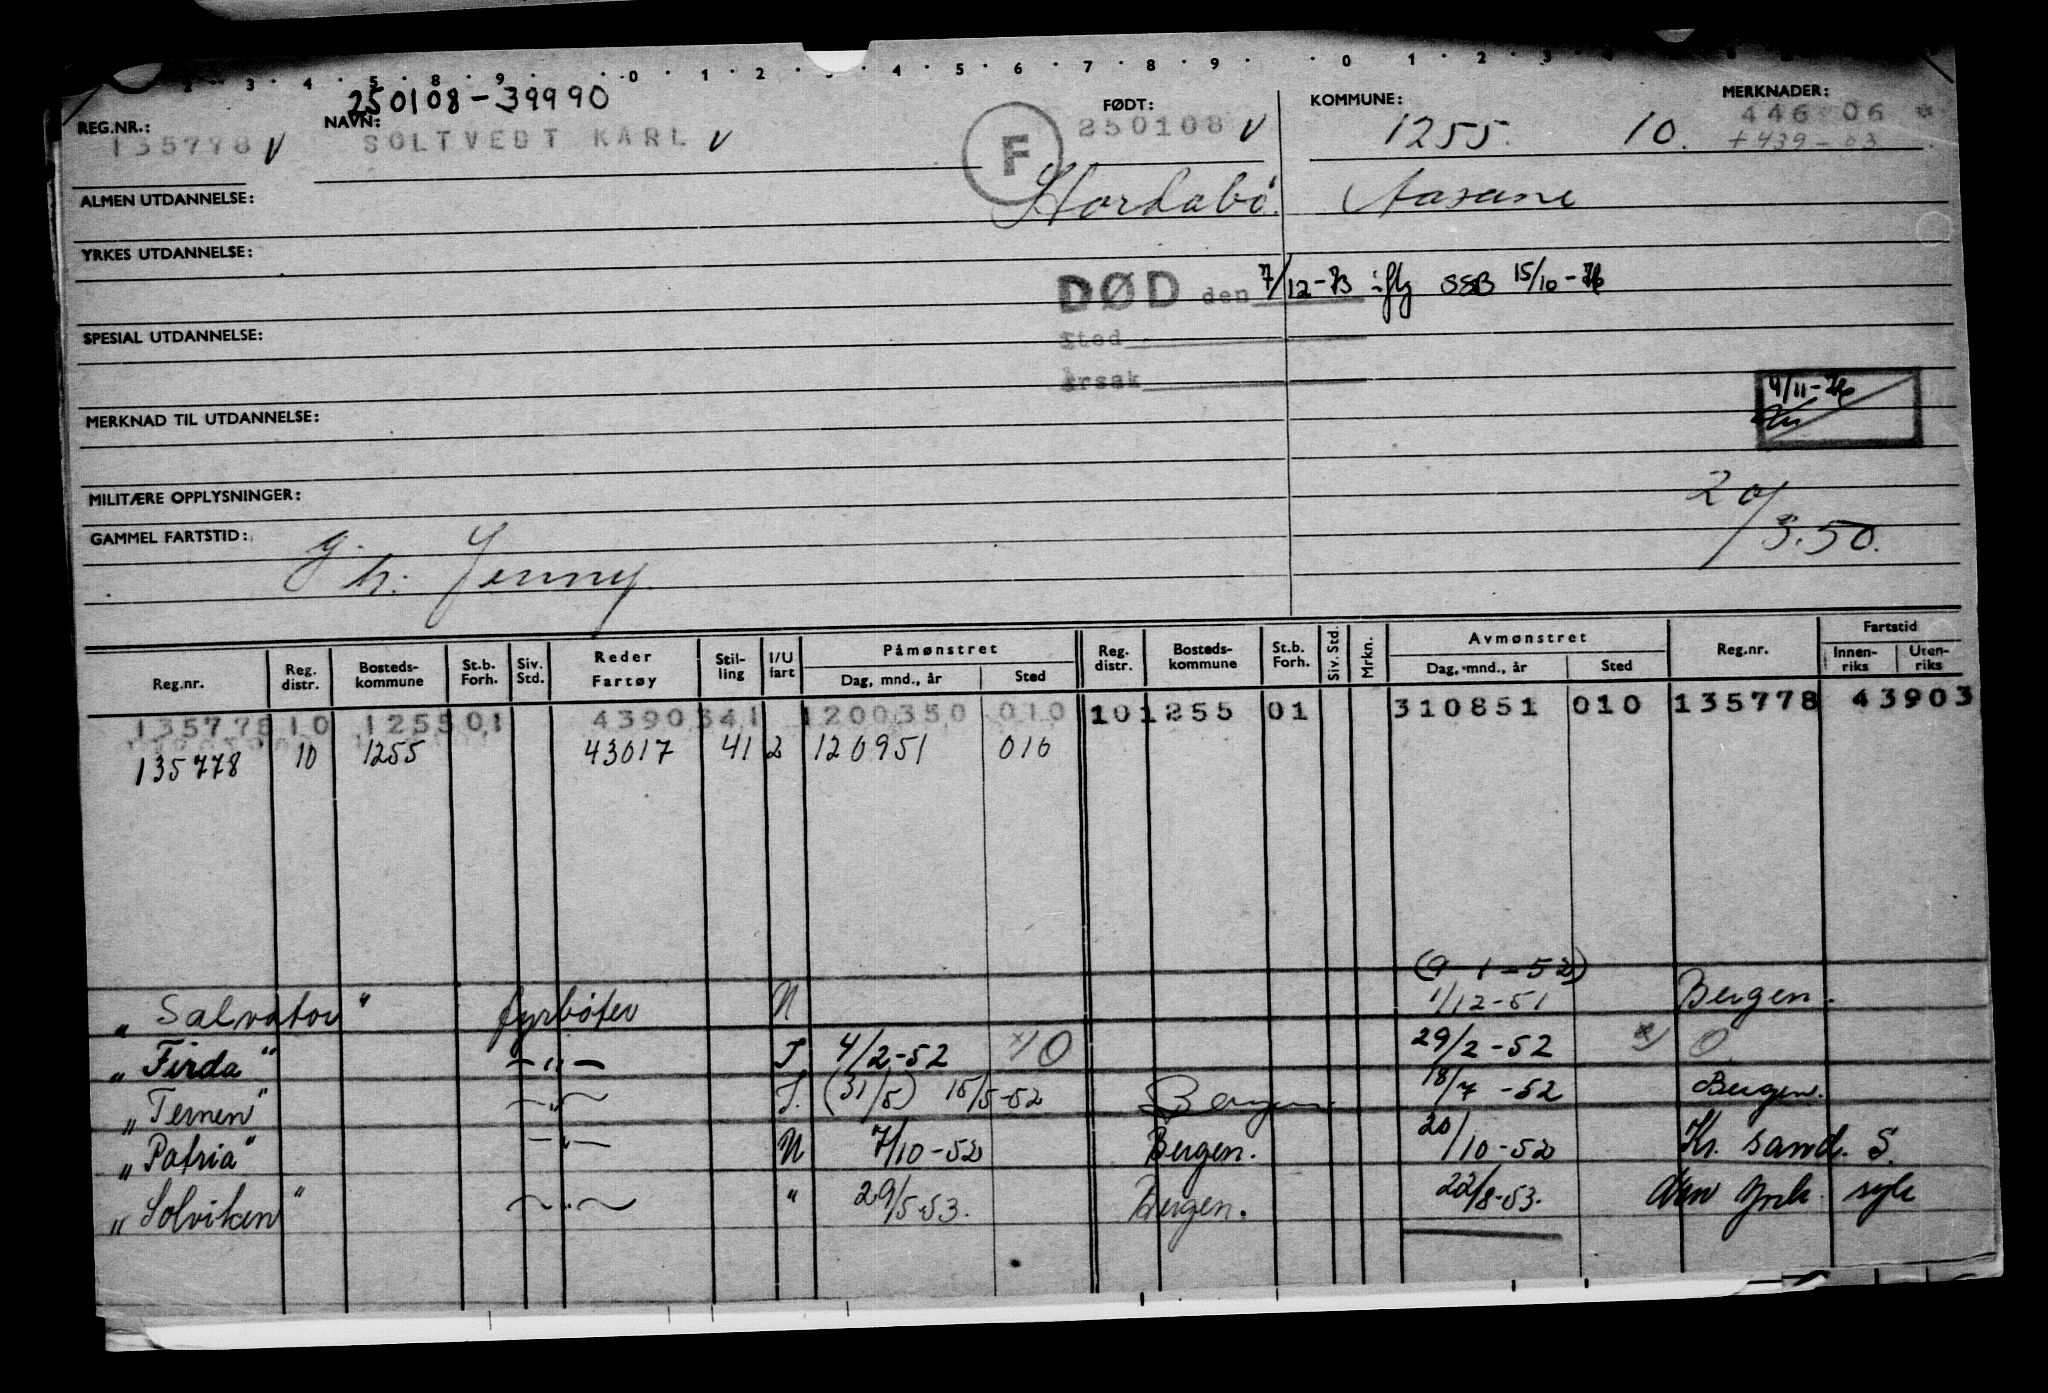 2 3 4 5 8 9 0 1 2 3 4 5 6 7 8 9 0 1 2 3 4
250108-39990
REG.NR.: NAVN: FØDT: KOMMUNE: MERKNADER:
135778 V SOLTVEDT KARL V F 250108 V 1255. 10. 446 06 *
+439-03
ALMEN UTDANNELSE: Hordabö. Aasane
YRKES UTDANNELSE:
DØD den 7/12-73 iflg SSB 15/10-76
SPESIAL UTDANNELSE: Sted
Årsak
4/11-76
MERKNAD TIL UTDANNELSE:
MILITÆRE OPPLYSNINGER: 20/3.50.
GAMMEL FARTSTID: g. h. Jenny.
Reg.nr. Reg. distr. Bosteds-kommune St.b. Forh. Siv. Std. Reder Fartøy Stil-ling I/U fart Påmønstret Dag, mnd., år Sted Reg. distr. Bosteds-kommune St.b. Forh. Siv. Std. Mrkn. Avmønstret Dag, mnd., år Sted Reg.nr. Fartstid Innen-riks Uten-riks
135778 10 1255 01 43903 41 1 200350 010 10 1255 01 310851 010 135778 43903
135778 10 1255 43017 41 2 120951 010
(9-1-52)
"Salvator" fyrbøter U 1/12-51 Bergen.
"Firda" -"- I 4/2-52 x) O 29/2-52 x) O
"Ternen" -"- I. (31/5) 15/5-52 Bergen 18/7-52 Bergen.
"Patria" -"- U 7/10-52 Bergen. 20/10-52 Kr. sand. S.
"Solviken" -"- " 29/5-53. Bergen. 22/8-53.